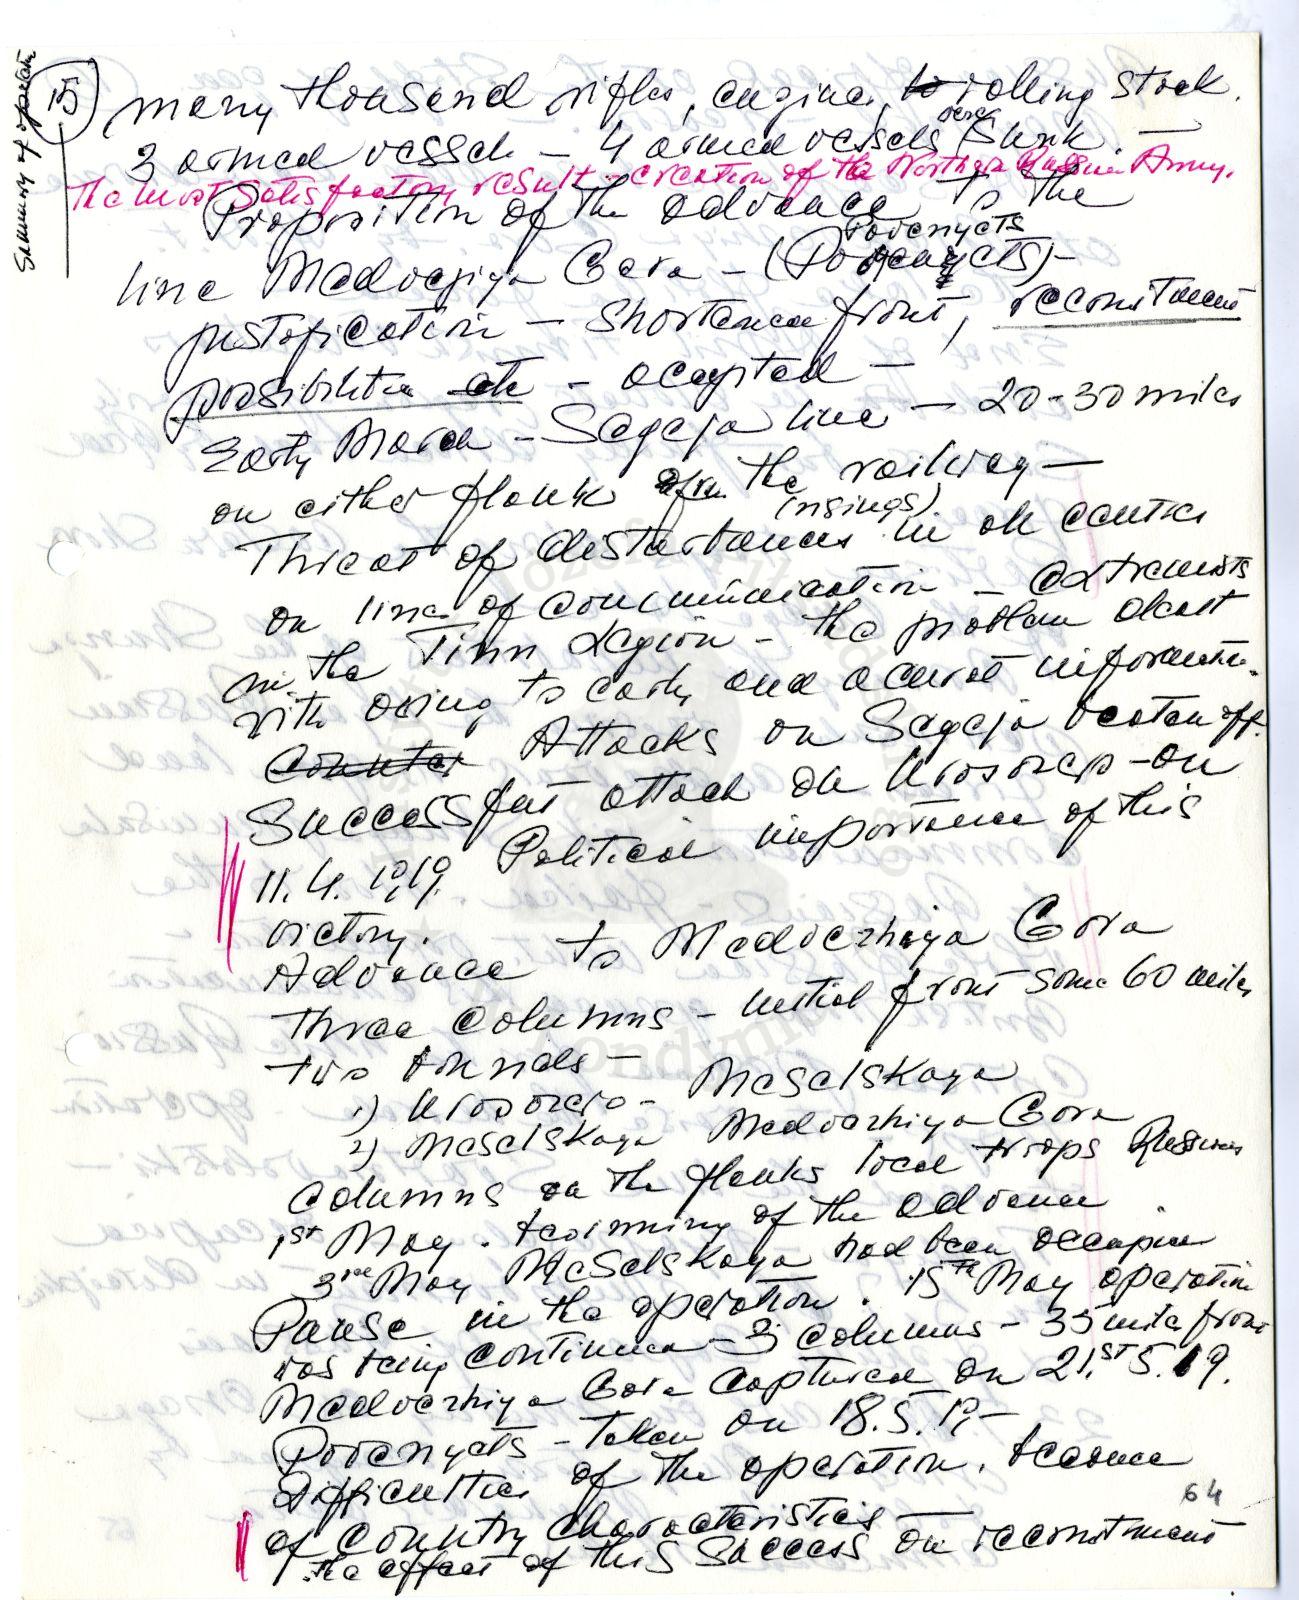 Summary of operate
15
many thousend rifles, engines, to rolling stock.
3 armed vessels – 4 armed vessels were sunk. –
The most satisfactory result – creation of the Northern Russian Army.
Proposition of the advance to the
line Medvezjiya Gora – (Povenycts) – Povenycts
justification – shortened front, recruitment
possibilities – accepted –
Early March – Segeja line – 20-30 miles
on either flank from the railway –
Threat of disturbances (risings) in all centres
on lines of communication – extremists
in the Finn Legion – the problem dealt
with owing to early and accurate information.
Counter Attacks on Segeja beaten off.
Successful attack on Urosozero – on
11.4.1919. Political importance of this
victory.
Advance to Medvezhiya Gora
three columns – initial front some 60 miles
two bounds –
1) Urosozero – Maselskaya
2) Maselskaya Medvezhiya Gora
columns on the flanks local troops Russians
1st May. beginning of the advance.
3rd May Maselskaya had been occupied
Pause in the operation. 15th May operation
was being continued – 3 columns – 35 mile front
Medvezhiya Gora captured on 21.st 5.19.
Povenycts – taken on 18.5.19 –
Difficulties of the operation, because
of country characteristics –
The effect of this success on recruitment
64
Londynie